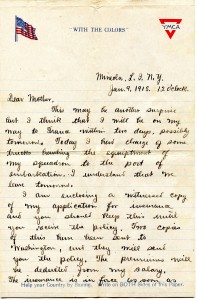 "WITH THE COLORS"
YMCA
Mineola, L. I. N.Y.
Jan. 9, 1918. 12 o'clock
Dear Mother,
This may be another surprise
but I think that I will be on my
way to France within two days, possibly
tomorrow. Today I had charge of some
trucks hauling the equipment of
my squadron to the port of
embarkation. I understand that we
leave tomorrow.
I am enclosing a witnessed copy
of my application for insurance
and you should keep this until
you receive the policy. Two copies
of this have been sent to
Washington and they will send
you the policy. The premiums will
be deducted from my salary.
The insurance is in force as soon as
Help your Country by Saving. Write on BOTH Sides of this Paper.